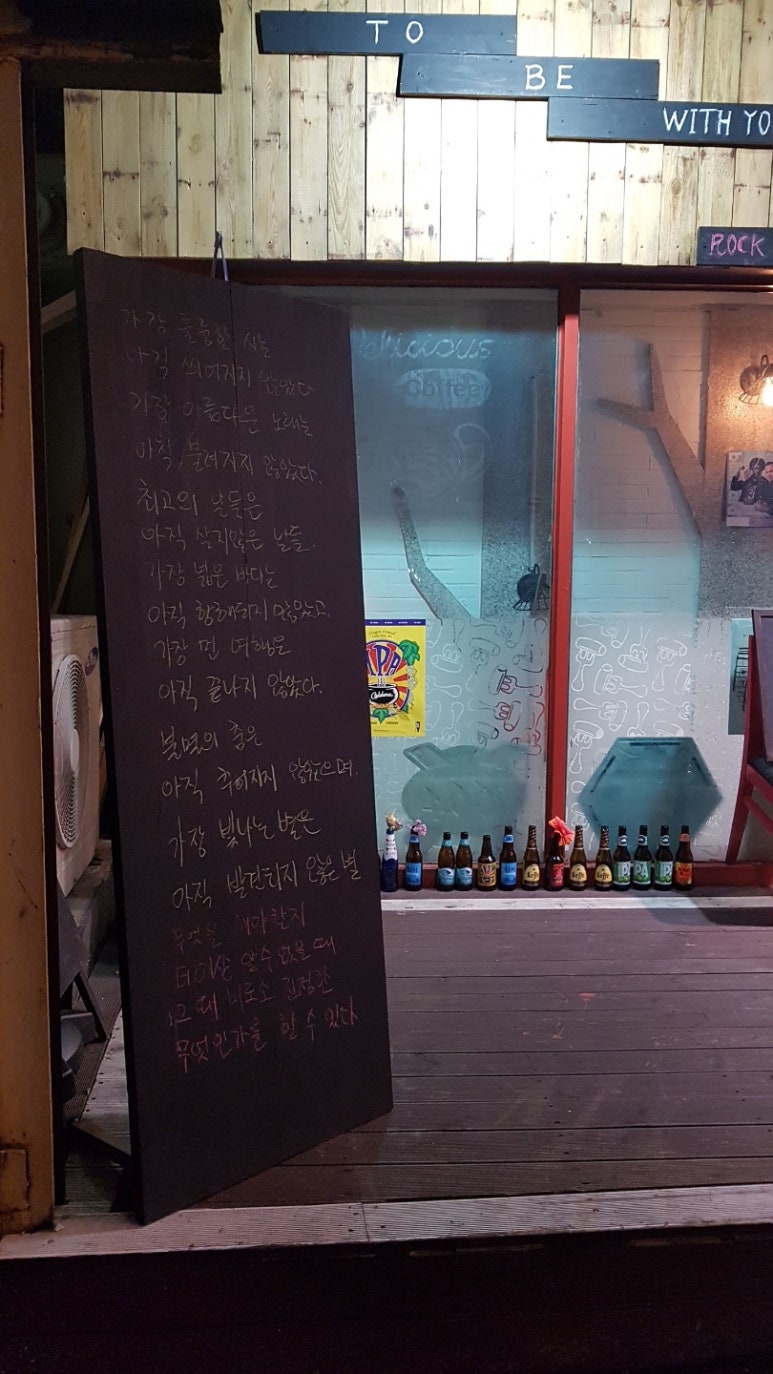 TO
BE
WITH YO
ROCK
가장 훌륭한 시는
아직 씌여지지 않았다
가장 아름다운 노래는
아직 불려지지 않았다.
최고의 날들은
아직 살지않은 날들.
가장 넓은 바다는
아직 항해되지 않았고,
가장 먼 여행은
아직 끝나지 않았다.
불멸의 춤은
아직 추어지지 않았으며,
가장 빛나는 별은
아직 발견되지 않은 별
무엇을 해야할지
더이상 알수 없을 때
그 때 비로소 진정한
무엇인가를 할 수 있다
Delicious
Coffee
IPA
Leffe
Leffe
Leffe
IPA